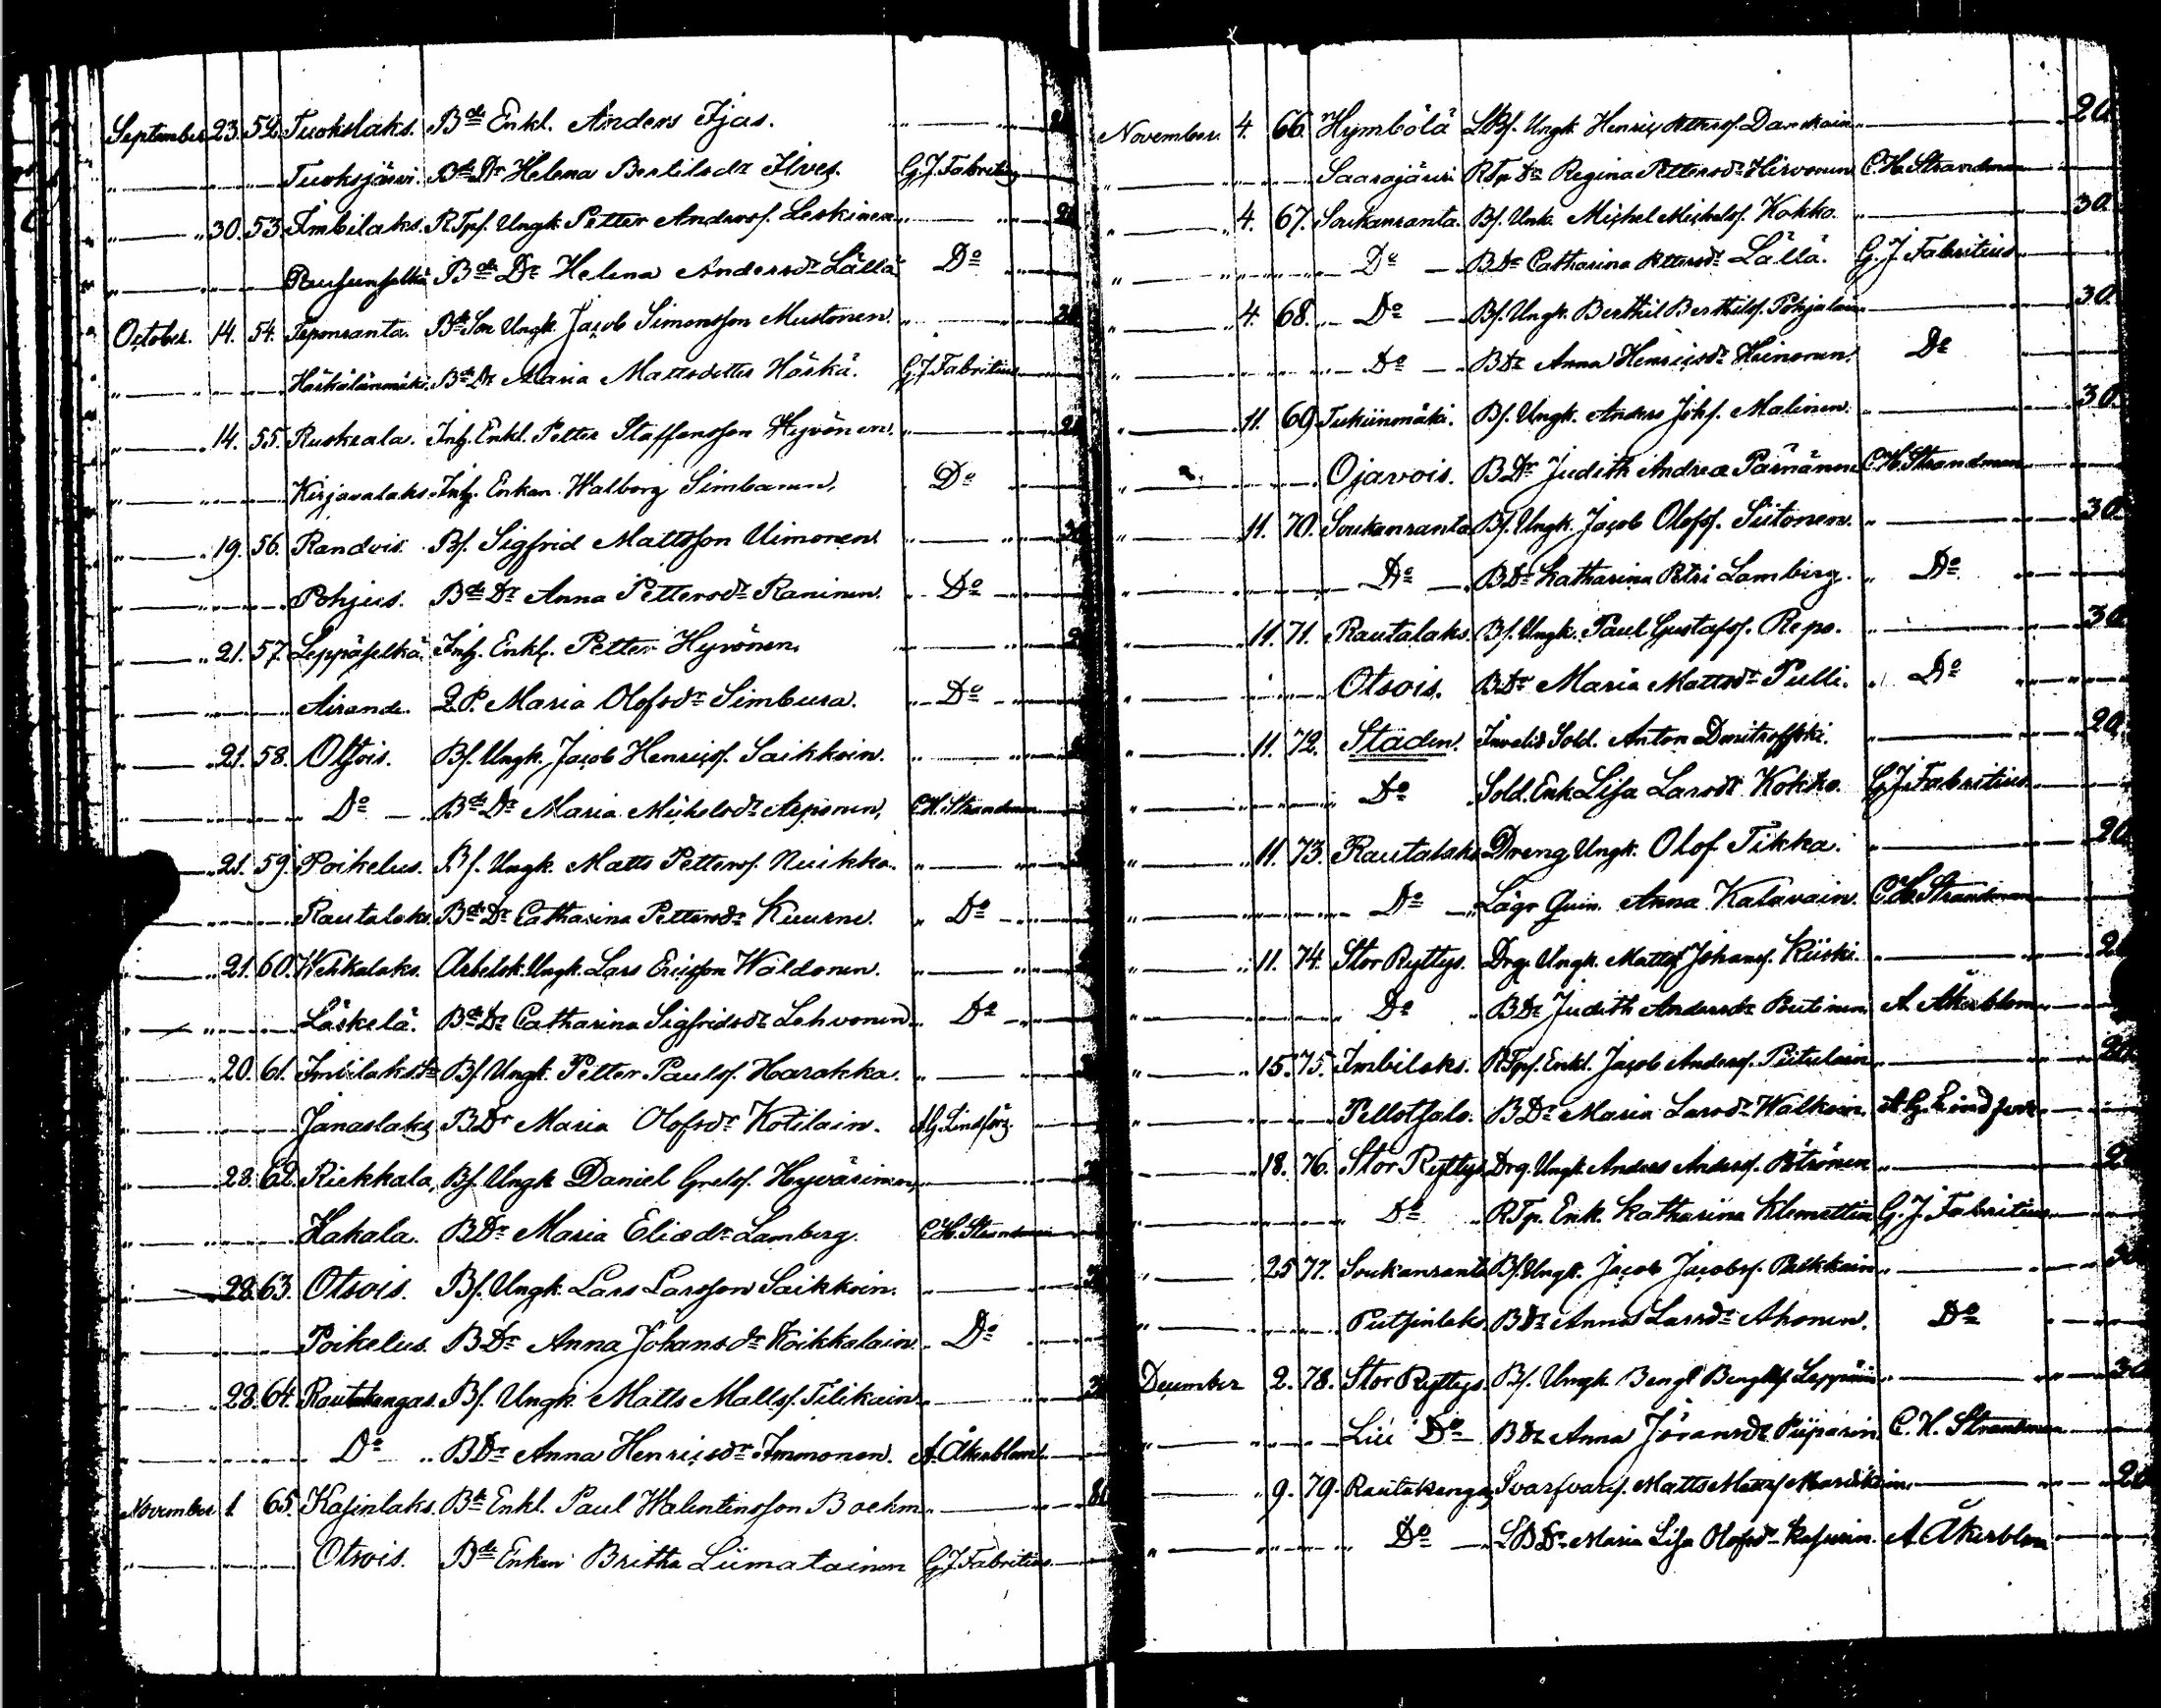 September 23. 52. Tuokslaks. Bde Enkl. Anders Ijas.
Tuoksjärvi. Bde Dr Helena Bertilsdr Ilves. G.J. Fabritius
30. 53. Imbilaks. RTps. Ungk. Petter Anderss. Leskinen
Bde Dr Helena Andersdr Lällä Do
October. 14. 54. Teponranta. Bde Son Ungk. Jacob Simonsson Mustonen.
Härkälänmäki. Bde Dr Maria Mattsdotter Härkä. G.J. Fabritius
14. 55. Ruskeala. Inh. Enkl. Petter Staffansson Hyvönen.
Kirjavalaks. Inh. Enkan Walborg Simbanen. Do
19. 56. Randvis. Bs. Sigfrid Mattsson Uimonen
Pohjus. Bde Dr Anna Pettersdr Raninen. Do
21. 57. Leppäselkä. Inh. Enkl. Petter Hyvönen.
Airande. Q.P. Maria Olofsdr Simbura. Do
21. 58. Otsois. Bs. Ungk. Jacob Henrics. Saikkoin.
Do Bde Dr Maria Michelsdr Reponen. C.H. Strandman
21. 59. Poikelus. Bs. Ungk. Matts Petters. Nuikka.
Rautalaks. Bde Dr Catharina Pettersdr Kuurne. Do
21. 60. Wehkalaks. Arbetsk. Ungk. Lars Ericsson Waldonen.
Läskelä. Bde Dr Catharina Sigfridsdr Lehvonen Do
20. 61. Imbilaks Bs. Ungk. Petter Pauls. Harakka.
Janaslaks BDr Maria Olofsdr Kotilain. A.G. Lindfors
28. 62. Riekkala, Bs. Ungk Daniel Grels. Hyvärinen,
Hakala. BDr Maria Eliædr Lamberg. C.H. Strandman
28. 63. Otsois. Bs. Ungk. Lars Larsson Saikkoin.
Poikelus. BDr Anna Johansdr Koikkalain. Do
28. 64. Rautakangas. Bs. Ungk. Matts Matts. Tilikain.
Do BDr Anna Henricsdr Immonen. A. Åkerblom
November 1. 65. Kasinlaks. Bde Enkl. Paul Walentinsson Boehm
Otsois. Bde Enkan Britha Liimatainen G.J. Fabritius
November. 4. 66. Hymbölä LBs. Ungk. Henric Petters. 20.
Saarajärvi RTp Dr Regina Pettersdr Hirvonen C.H. Strandman
4. 67. Soukanranta. Bs. Unk. Michel Michels. Kokko. 30.
Do BDr Catharina Pettersdr Lällä. G.J. Fabritius
4. 68. Do Bs. Ungk. Berthil Berthils. Pohjalain 30.
Do BDr Anna Henricsdr Heinonen. Do
11. 69. Tukiinmäki. Bs. Ungk. Anders Johs. Malinen. 30.
Ojavois. BDr Judith Andreæ Pärnänen C.H. Strandman
11. 70. Soukanranta Bs. Ungk. Jacob Olofs. Siitonen. 30.
Do BDr Katharina Petri Lamberg. Do
11. 71. Rautalaks. Bs. Ungk. Paul Gustafs. Repo. 30
Otsois. BDr Maria Mattsdr Pulli. Do
11. 72. Staden. Invalid Sold. Anton Dmitroffski. 20.
Do Sold. Enk Lisa Larsdr Kokko. G.J. Fabritius
11. 73. Rautalaks Dreng Ungk. Olof Tikka. 20
Do Lägr Quin. Anna Kalavain. C.H. Strandman
11. 74. Stor Ryttys. Drg. Ungk. Matts Johans. Kiiski. 2
Do BDr Judith Andersdr Poutinen A Åkerblom
15. 75. Imbilaks. RTps. Enkl. Jacob Anders. Piitulain 20
Pellotsalo. BDr Maria Larsdr Walkoin. A.G. Lindfors
18. 76. Stor Ryttys Drg. Ungk. Anders Anders. Pötrönen 2
Do RTp. Enk. Katharina Klemettin G.J. Fabritius
25 77. Soukanranta Bs. Ungk. Jacob Jacobs. Pulkkain
Putsinlaks BDr Anna Larsdr Ahonen. Do
December 2. 78. Stor Ryttys. Bs. Ungk. Bengt Bengts. Leppäin 30
Lill Do BDr Anna Jöransdr Piiparin. C.H. Strandman
9. 79. Rautakangas Svarfvars. Matts Matts 20
Do LBDr Maria Lisa Olofsdr Kasurin. A Åkerblom